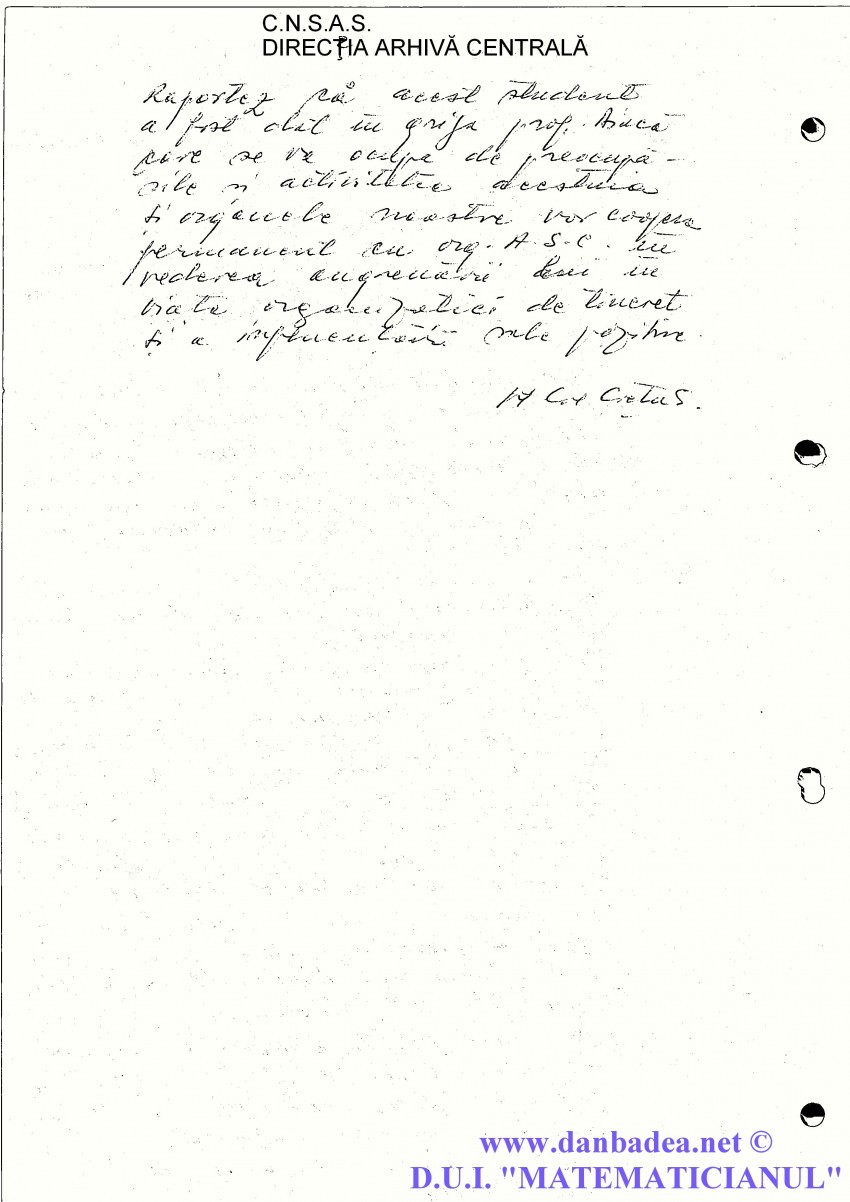 C.N.S.A.S.
DIRECȚIA ARHIVĂ CENTRALĂ
Raportez că acest student
a fost dat în grija prof.
care se va ocupa de preocupă-
rile și activitatea acestuia
și organele noastre vor coopera
permanent cu org. A.S.C. în
vederea angrenării lui în
viața organizației de tineret
și a influențării sale pozitive.
www.danbadea.net ©
D.U.I. "MATEMATICIANUL"